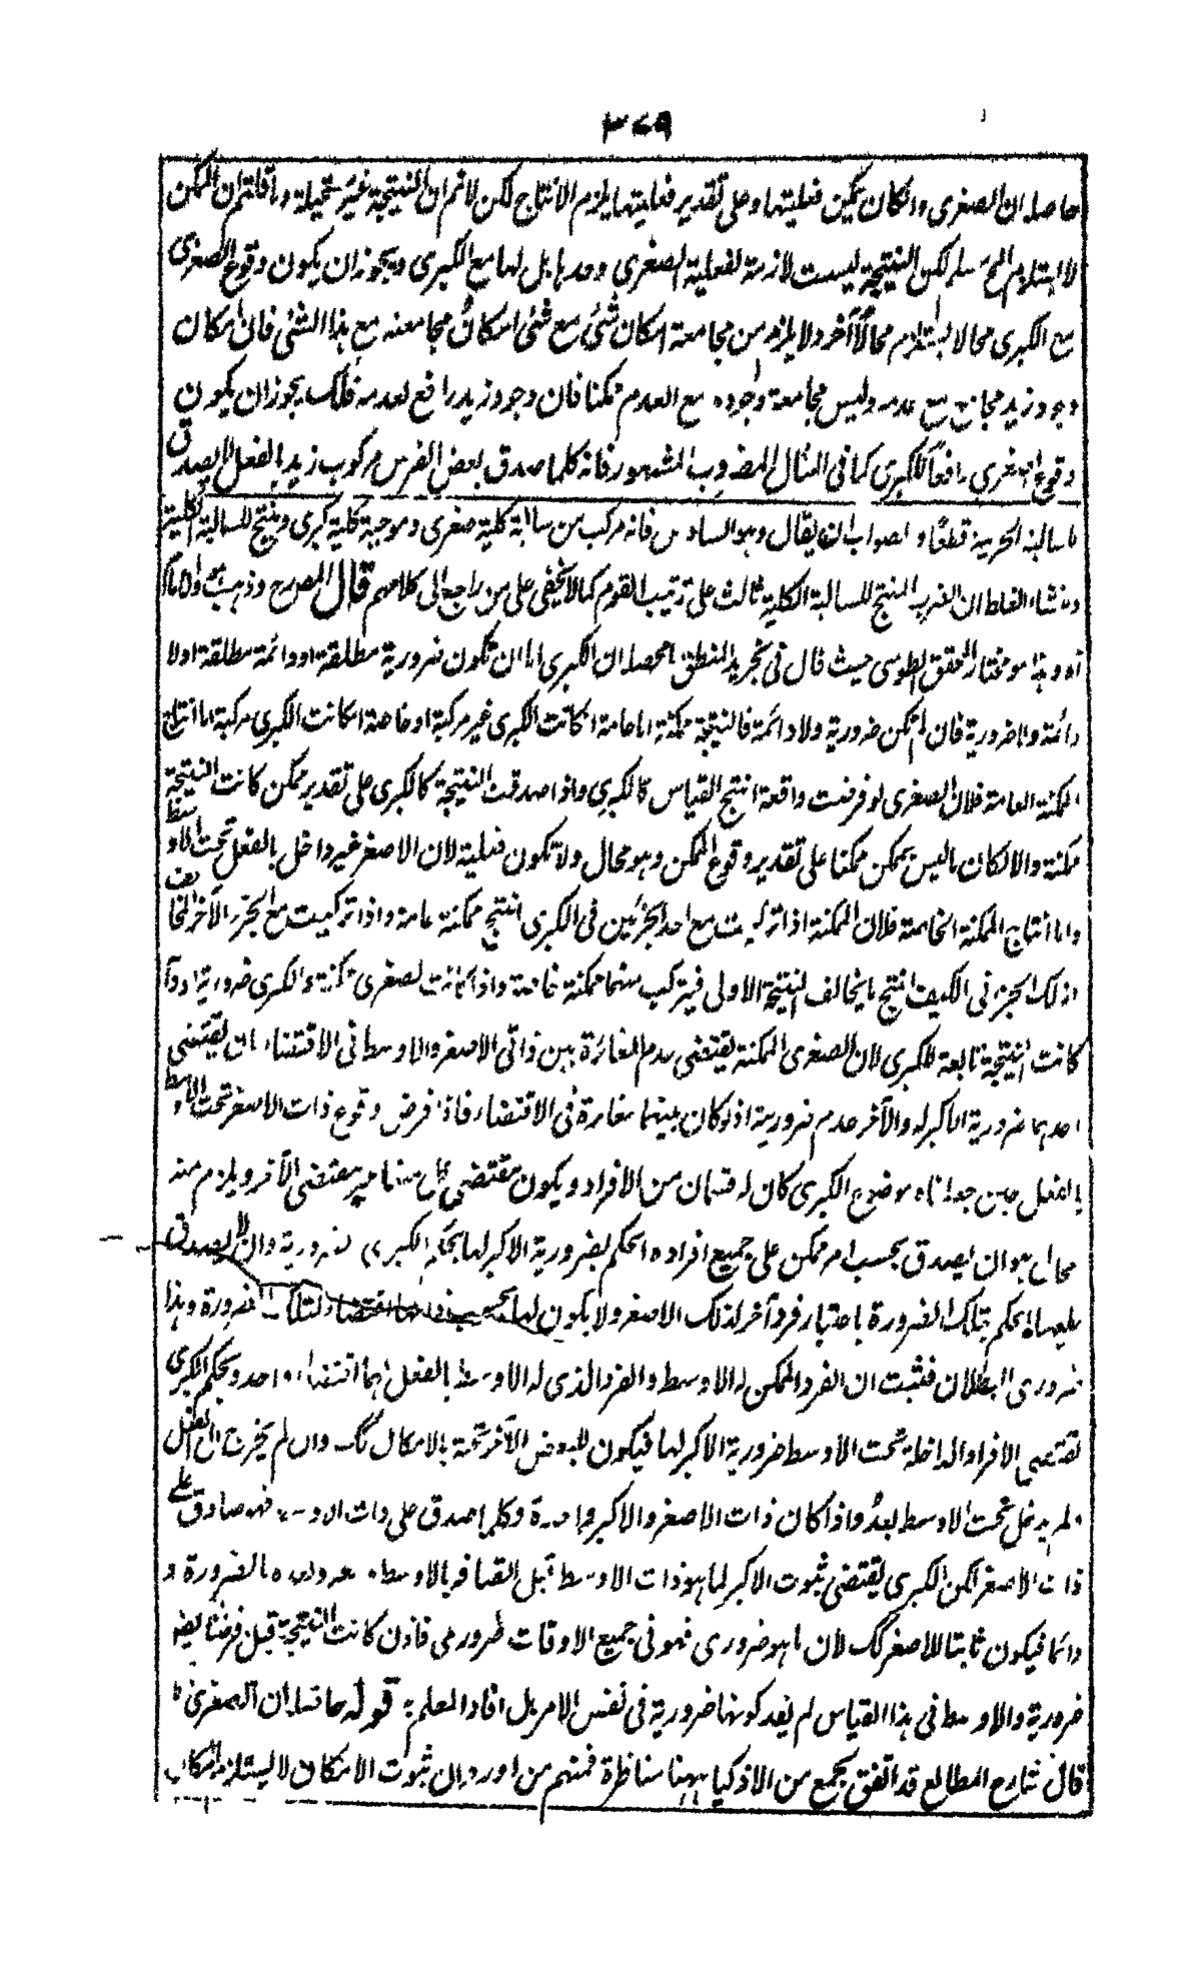 ٣٧٩
حاصله ان الصغرى وان كان يمكن فعليتها وعلى تقدير فعليتها يلزم الانتاج لكن لا نم ان النتيجة غير مستحيلة وما قلتم ان الممكن
لا يستلزم المح سلم لكن النتيجة ليست لازمة لفعلية الصغرى وحدها بل لها مع الكبرى ويجوز ان يكون وقوع الصغرى
مع الكبرى محالا يستلزم محالاً آخر ولا يلزم من مجامعة امكان شئ مع شئ امكان مجامعته مع هذا الشئ فان امكان
وجود زيد مجامع مع عدمه وليس مجامعة وجوده مع العدم ممكنا فان وجود زيد رافع لعدمه فلك يجوز ان يكون
وقوع الصغرى رافعاً للكبرى كما فى المثال المضروب المشهور فانه كلما صدق بعض الفرس مركوب زيد بالفعل لا يصدق
السالبة الجزئية قطعًا والصواب ان يقال وهو السادس فانه مركب من سالبة كلية صغرى وموجبة كلية كبرى وينتج للسالبة الكلية
ومنشاء الغلط ان الضرب المنتج للسالبة الكلية ثالث على ترتيب القوم كما لا يخفى على من راجع الى كلامهم قال المصرح وذهب
اه وهذا هو مختار المحقق الطوسى حيث قال فى تجريد المنطق ما محصله ان الكبرى اما ان تكون ضرورية مطلقة او دائمة مطلقة او لا
دائمة ولا ضرورية فان لم تكن ضرورية ولا دائمة فالنتيجة ممكنة اما عامة انكانت الكبرى غير مركبة او خاصة انكانت الكبرى مركبة اما انتاج
الممكنة العامة فلان الصغرى لو فرضت واقعة انتج القياس كالكبرى واذا صدقت النتيجة كالكبرى على تقدير ممكن كانت النتيجة
ممكنة والا لكان ما ليس بممكن ممكنا على تقدير وقوع الممكن وهو محال ولا تكون فعلية لان الاصغر غير داخل بالفعل تحت الاوسط
واما انتاج الممكنة الخاصة فلان الممكنة اذا تركبت مع احد الجزئين فى الكبرى انتج ممكنة عامة واذا تركبت مع الجزء الآخر المخالف
لذلك الجزء فى الكيف انتج ما يخالف النتيجة الاولى فيتركب منهما ممكنة خاصة واذا كانت الصغرى ممكنة والكبرى ضرورية او دائمة
كانت النتيجة تابعة للكبرى لان الصغرى الممكنة يقتضى عدم المغائرة بين ذاتى الاصغر والاوسط فى الاقتضاء بان يقتضى
احدهما ضرورية الاكبر له والآخر عدم ضرورية اذ لو كان بينهما مغايرة فى الاقتضاء فاذا فرض وقوع ذات الاصغر تحت الاوسط
بالفعل حين جعلناه موضوع الكبرى كان له قسمان من الافراد ويكون مقتضى كل منهما غير مقتضى الآخر ويلزم منه
محال هو ان يصدق بحسب امر ممكن على جميع افراده الحكم بضرورية الاكبر لها بحكم الكبرى ضرورية وان لا يصدق
عليها الحكم بتلك الضرورة باعتبار فرد آخر لذلك الاصغر ولا يكون لها بحسب اقتضاء لتلك الضرورة وهذا
ضرورى البطلان فثبت ان الفرد الممكن له الاوسط والفرد الذى له الاوسط بالفعل لهما اقتضاء واحد وبحكم الكبرى
تقتضى الافراد الداخلة تحت الاوسط ضرورية الاكبر لها فيكون للبعض الآخر تحته بالامكال لك وان لم يخرج الى الفعل
ولم يدخل تحت الاوسط بعدُ واذا كان ذات الاصغر والاكبر واحدة وكلما صدق على ذات الاوسط فهو صادق على
ذات الاصغر لكن الكبرى يقتضى ثبوت الاكبر لما هو ذات الاوسط قبل اتصافه بالاوسط بالضرورة و
دائما فيكون ثابتا للاصغر لك لان ما هو ضرورى فهو فى جميع الاوقات ضرورى فاذن كانت النتيجة قبل فرضنا ايضا
ضرورية والاوسط فى هذا القياس لم يفد كونها ضرورية فى نفس الامر بل افاد العلم به قوله حاصله ان الصغرى
قال شارح المطالع قد اتفق بجمع من الاذكيا ههنا مناظرة فمنهم من اورد ان ثبوت الامكان لا يستلزم امكان